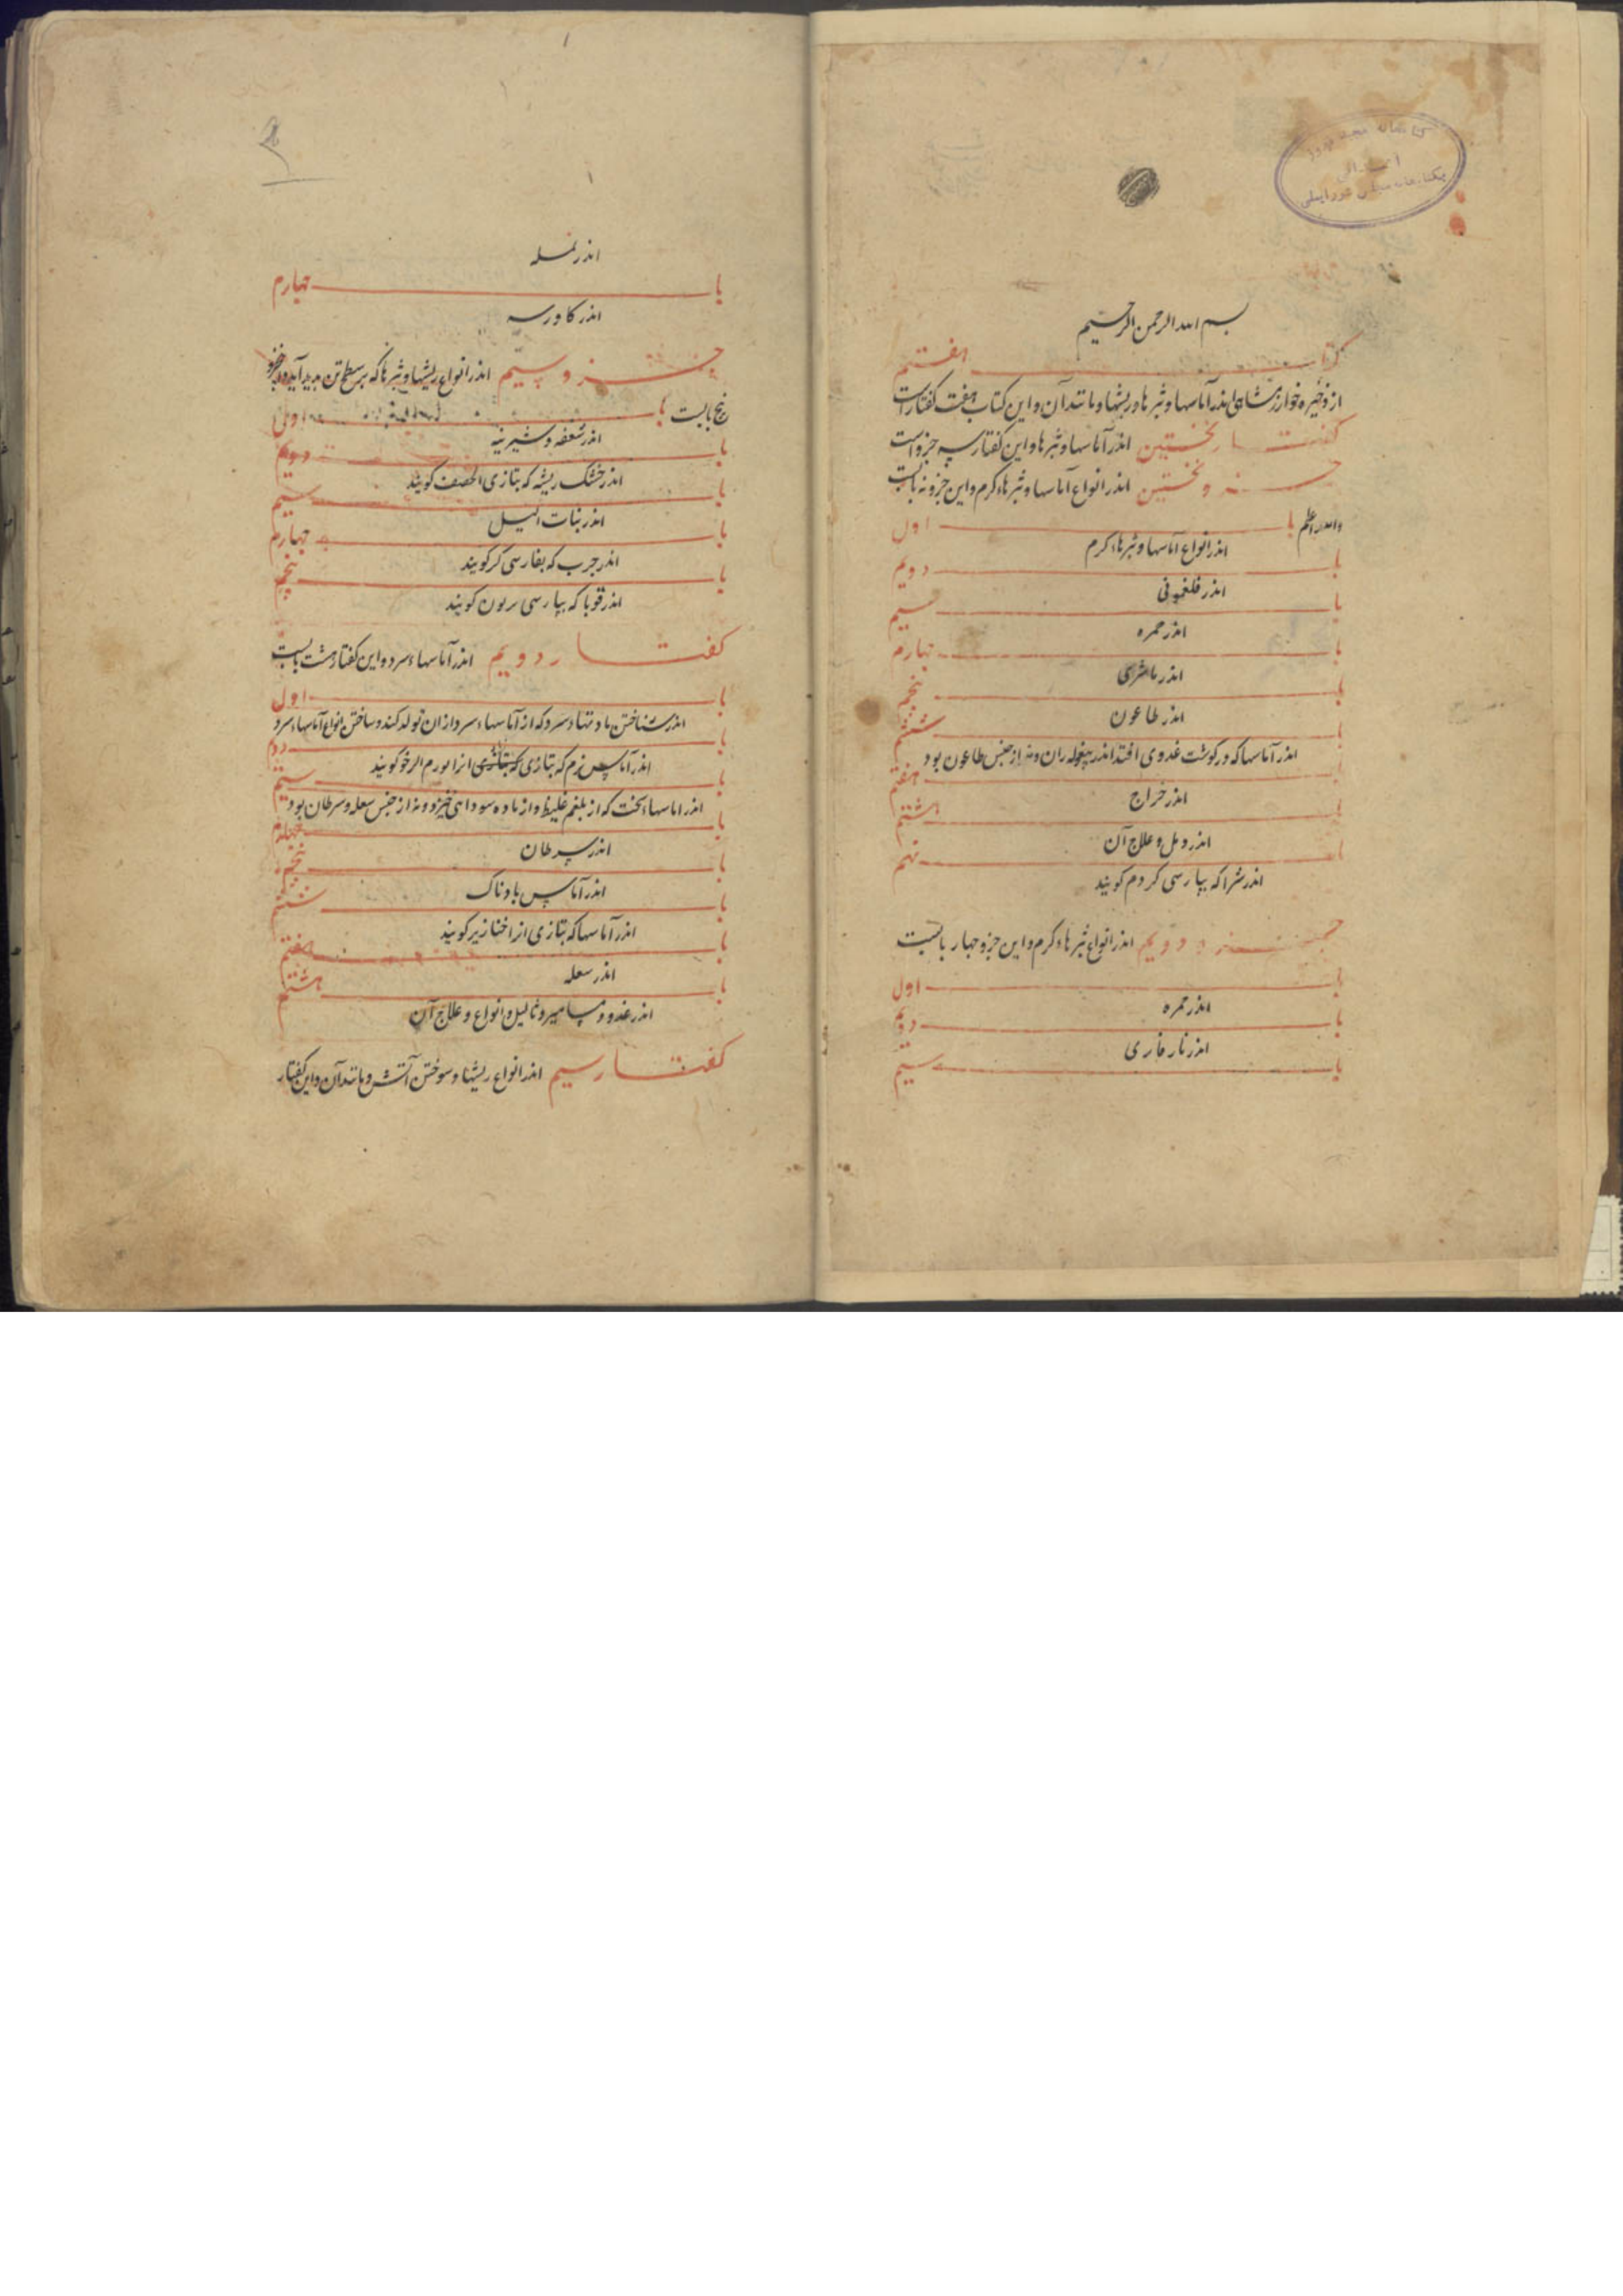 بسم الله الرحمن الرحیم
کتاب هفتم
از ذخیره خوارزمشاهی اندر آماسها و بثرها و ریشها و مانند آن و این کتاب هفت گفتارست
گفتار نخستین اندر آماسها و بثرها و این گفتار سه جزو است
جزو نخستین اندر انواع آماسها و بثرهاء گرم و این جزو نه بابست
والله اعلم باب اول
اندر انواع آماسها و بثرهاء گرم
باب دویم
اندر فلغمونی
باب سیم
اندر حمره
باب چهارم
اندر ماشری
باب پنجم
اندر طاعون
باب ششم
اندر آماسها که در گوشت غددی افتد اندر پیغوله ران و نه از جنس طاعون بود
باب هفتم
اندر خراج
باب هشتم
اندر دمل و علاج آن
باب نهم
اندر شرا که بپارسی کردم گویند
جزو دویم اندر انواع بثرهاء گرم و این جزو چهار بابست
باب اول
اندر حمره
باب دویم
اندر نار فارسی
باب سیم
اندر نمله
باب چهارم
اندر کاورسه
جزو سیم اندر انواع ریشها و بثرها که بر سطح تن پدید آید و این جزو
پنج بابست باب اول
اندر سعفه و شیرینه
باب دویم
اندر خشک ریشه که بتازی الحصف گویند
باب سیم
اندر بنات اللیل
باب چهارم
اندر جرب که بفارسی گر گویند
باب پنجم
اندر قوبا که بپارسی بریون گویند
گفتار دویم اندر آماسهاء سرد و این گفتار هشت بابست
باب اول
اندر شناختن مادتهاء سرد که از آماسهاء سرد از ان تولد کند و ساختن انواع آماسهاء سرد
باب دوم
اندر آماس نرم که بتازی که بتازی انرا لورم الرخو گویند
باب سیم
اندر اماسهاء سخت که از بلغم غلیظ و از ماده سودائی خیزد و نه از جنس سعله و سرطان بود
باب چهارم
اندر سرطان
باب پنجم
اندر آماس بادناک
باب ششم
اندر آماسها که بتازی انرا خنازیر گویند
باب هفتم
اندر سعله
باب هشتم
اندر غدد و مسامیر و ثالیل و انواع و علاج آن
گفتار سیم اندر انواع ریشها و سوختن آتش و مانند آن و این گفتار